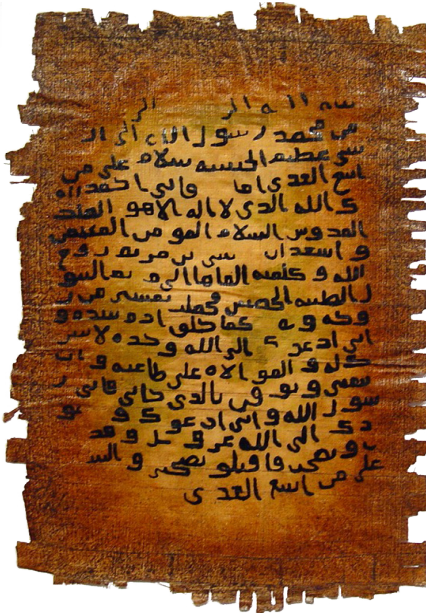 سم الله الر الر
من محمد رسول الله الى ال
شي عظيم الحبشه سلام على من
اتبع الهدى اما فاني احمد
ك الله الذي لا اله الا هو الملك
القدوس السلام المومن المهيمن
و اشهد ان سى بن مريم روح
الله و كلمته القاها الى يم البتو
ل الطيبه الحصينه فحملت بعيسى من ر
وحه و ه كما خلق ادم بيده و
اني ادعوك الى الله وحده لا شر
يك له و الموالاه على طاعته و ان
تتبعني و تو قن بالذي جاني فاني ر
سول الله واني ادعوك و نو
دك الى الله عز و جل و قد
ت و نصحت فاقبلو نصحتي و الس
على من اتبع الهدى